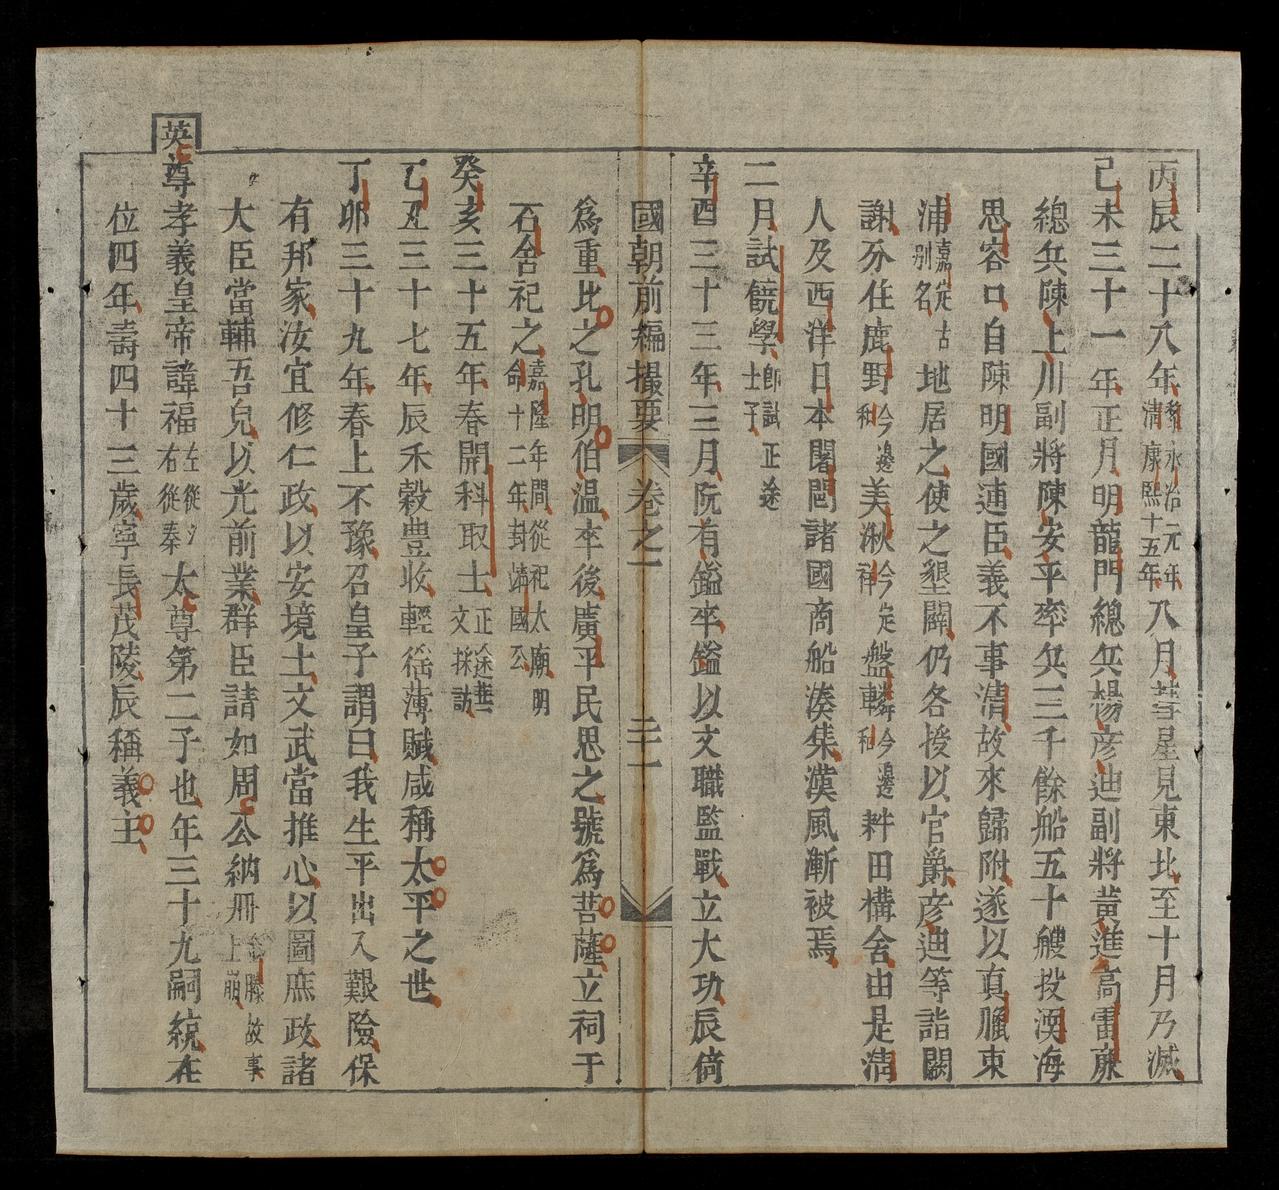 丙辰二十八年黎永治元年清康熙十五年八月彗星見東北至十月乃滅
己未三十一年正月明龍門總兵楊彦迪副將黃進高雷亷
總兵陳上川副將陳安平率兵三千餘船五十艘投溟海
思容口自陳明國逋臣義不事清故來歸附遂以真臘東
浦嘉定古别名地居之使之墾闢仍各授以官爵彦迪等詣闕
謝分住鹿野今邊和美湫今定祥盤轔今邊和耕田構舍由是清
人及西洋日本闍閭諸國商船湊集漢風漸被焉
二月試饒學即試正途士子
辛酉三十三年三月阮有鎰卒鎰以文職監戰立大功辰倚
國朝前編撮要 卷之一 二十一
爲重比之孔明伯温卒後廣平民思之號爲菩薩立祠于
石舍祀之嘉隆年間從祀太廟明命十二年封靖國公
癸亥三十五年春開科取士正途華文採訪
乙丑三十七年辰禾穀豊收輕徭薄賦咸稱太平之世
丁卯三十九年春上不豫召皇子謂曰我生平出入艱險保
有邦家汝宜修仁政以安境土文武當推心以圖庶政諸
大臣當輔吾兒以光前業群臣請如周公納冊金縢故事上崩
英尊孝義皇帝諱福左從氵右從秦太尊第二子也年三十九嗣統在
位四年壽四十三歲寧長茂陵辰稱義主